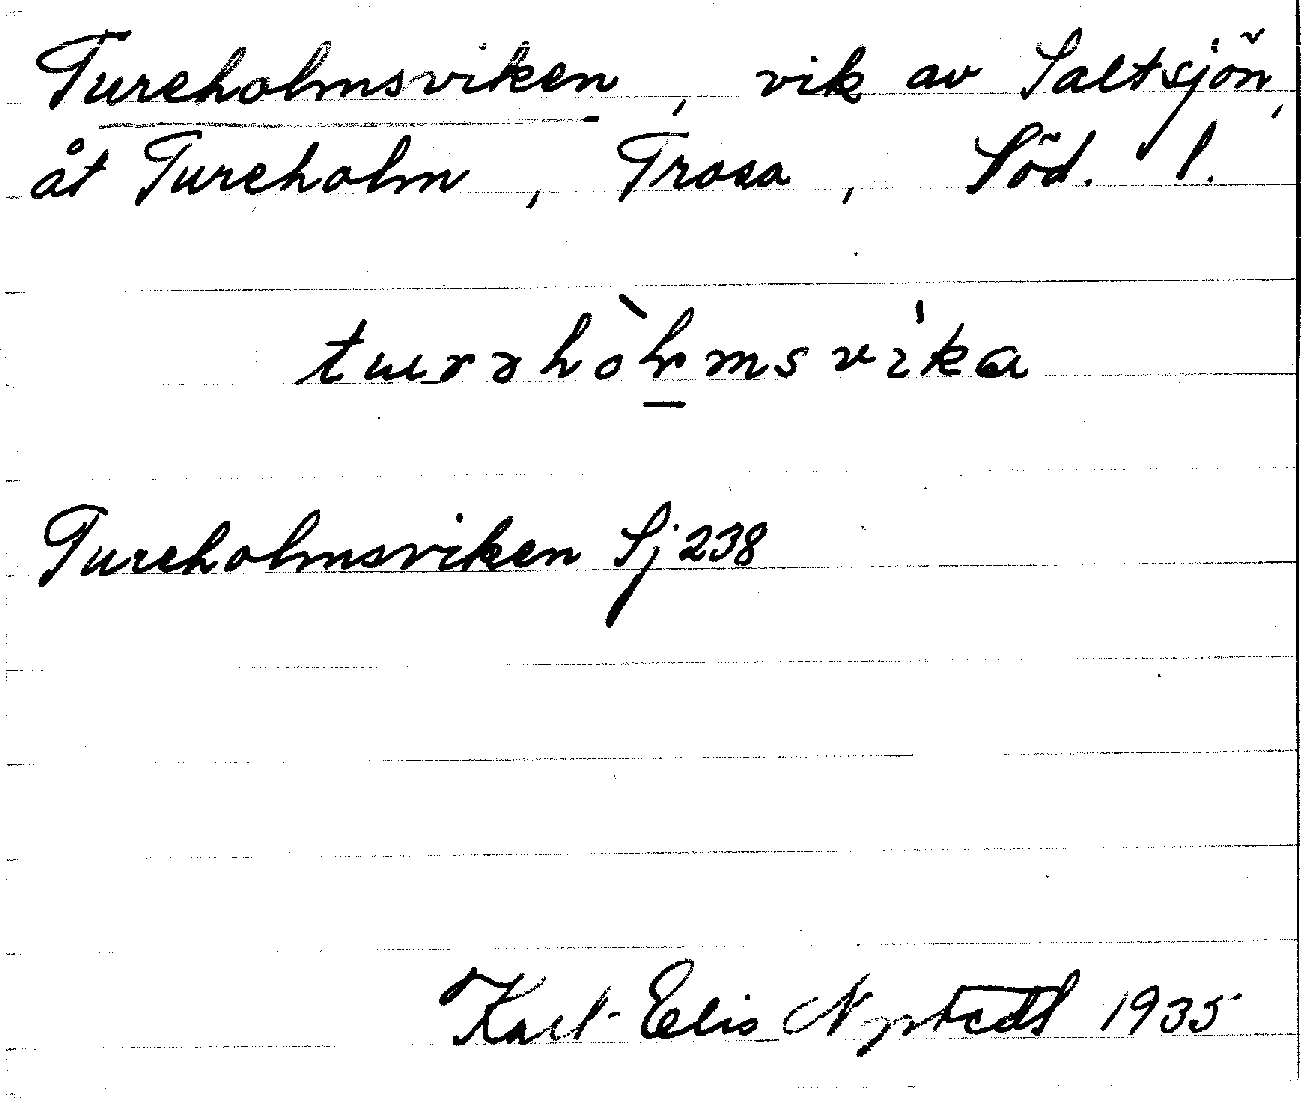 Tureholmsviken, vik av Saltsjön,
åt Tureholm, Trosa, Söd. l.
Tureholmsviken Sj 238
Karl-Elis Nystedt 1935